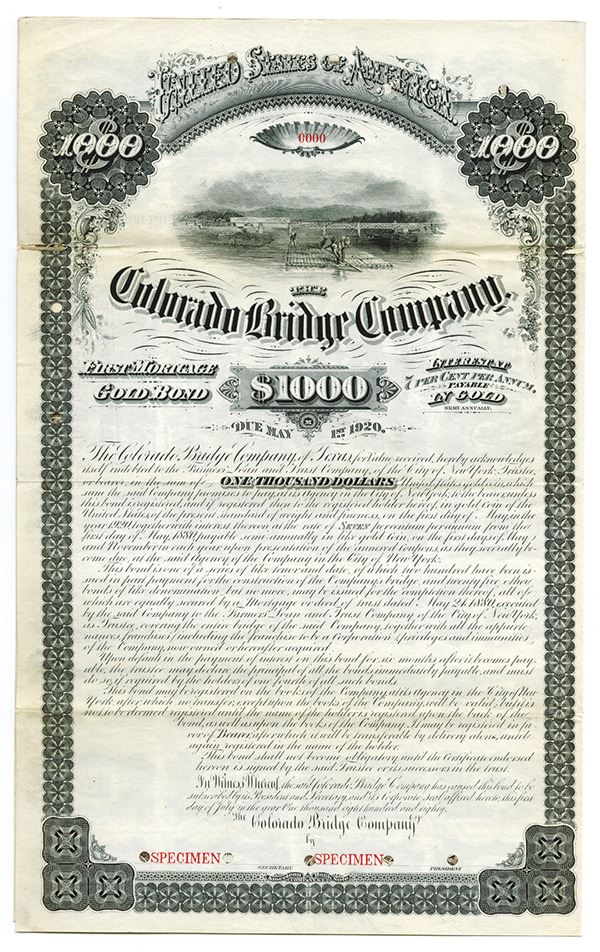 UNITED STATES OF AMERICA.
$1000
0000
$1000
THE
Colorado Bridge Company.
FIRST MORTGAGE
GOLD BOND
$1000
INTEREST AT
7 PER CENT PER ANNUM,
PAYABLE
IN GOLD
SEMI ANNUALLY.
DUE MAY 1ST 1920.
The Colorado Bridge Company, of Texas, for value received, hereby acknowledges
itself indebted to the Farmers' Loan and Trust Company, of the City of New York, Trustee,
or bearer, in the sum of ONE THOUSAND DOLLARS United States gold coin, which
sum the said Company promises to pay, at its Agency in the City of New York, to the bearer, unless
this bond is registered, and if registered then to the registered holder hereof, in gold coin of the
United States, of the present standard of weight and fineness, on the first day of May, in the
year 1920, together with interest thereon at the rate of Seven per centum per annum from the
first day of May, 1880, payable semi-annually in like gold coin, on the first days of May
and November in each year, upon presentation of the annexed Coupons, as they severally be-
come due, at the said Agency of the Company in the City of New York.
This bond is one of a series of like tenor and date, of which two hundred have been is-
sued in part payment for the construction of the Company's bridge, and twenty five other
bonds of like denomination, but no more, may be issued for the completion thereof, all of
which are equally secured by a Mortgage or deed of trust dated May 24 1880, executed
by the said Company to the Farmers' Loan and Trust Company of the City of New York,
as Trustee, covering the entire bridge of the said Company, together with all the appurte-
nances, franchises, (including the franchise to be a Corporation) privileges and immunities
of the Company, now owned or hereafter acquired.
Upon default in the payment of interest on this bond for six months after it becomes pay-
able, the trustee may declare the principal of all the bonds immediately payable, and must
do so, if required by the holders of one fourth of all such bonds.
This bond may be registered on the books of the Company, at its Agency in the City of New
York, after which no transfer, except upon the books of the Company, will be valid, but it is
not to be deemed registered until the name of the holder is registered upon the back of the
bond, as well as upon the books of the Company. It may be registered in fa-
vor of Bearer, after which it will be transferable by delivery alone, until
again registered in the name of the holder.
This bond shall not become obligatory until the Certificate endorsed
hereon is signed by the said Trustee or its successors in the trust.
In Witness Whereof, the said Colorado Bridge Company has caused this bond to be
subscribed by its President and Secretary, and its Corporate Seal affixed hereto, this first
day of July in the year One thousand eight hundred and eighty.
The Colorado Bridge Company
by
SPECIMEN
SECRETARY
SPECIMEN
PRESIDENT